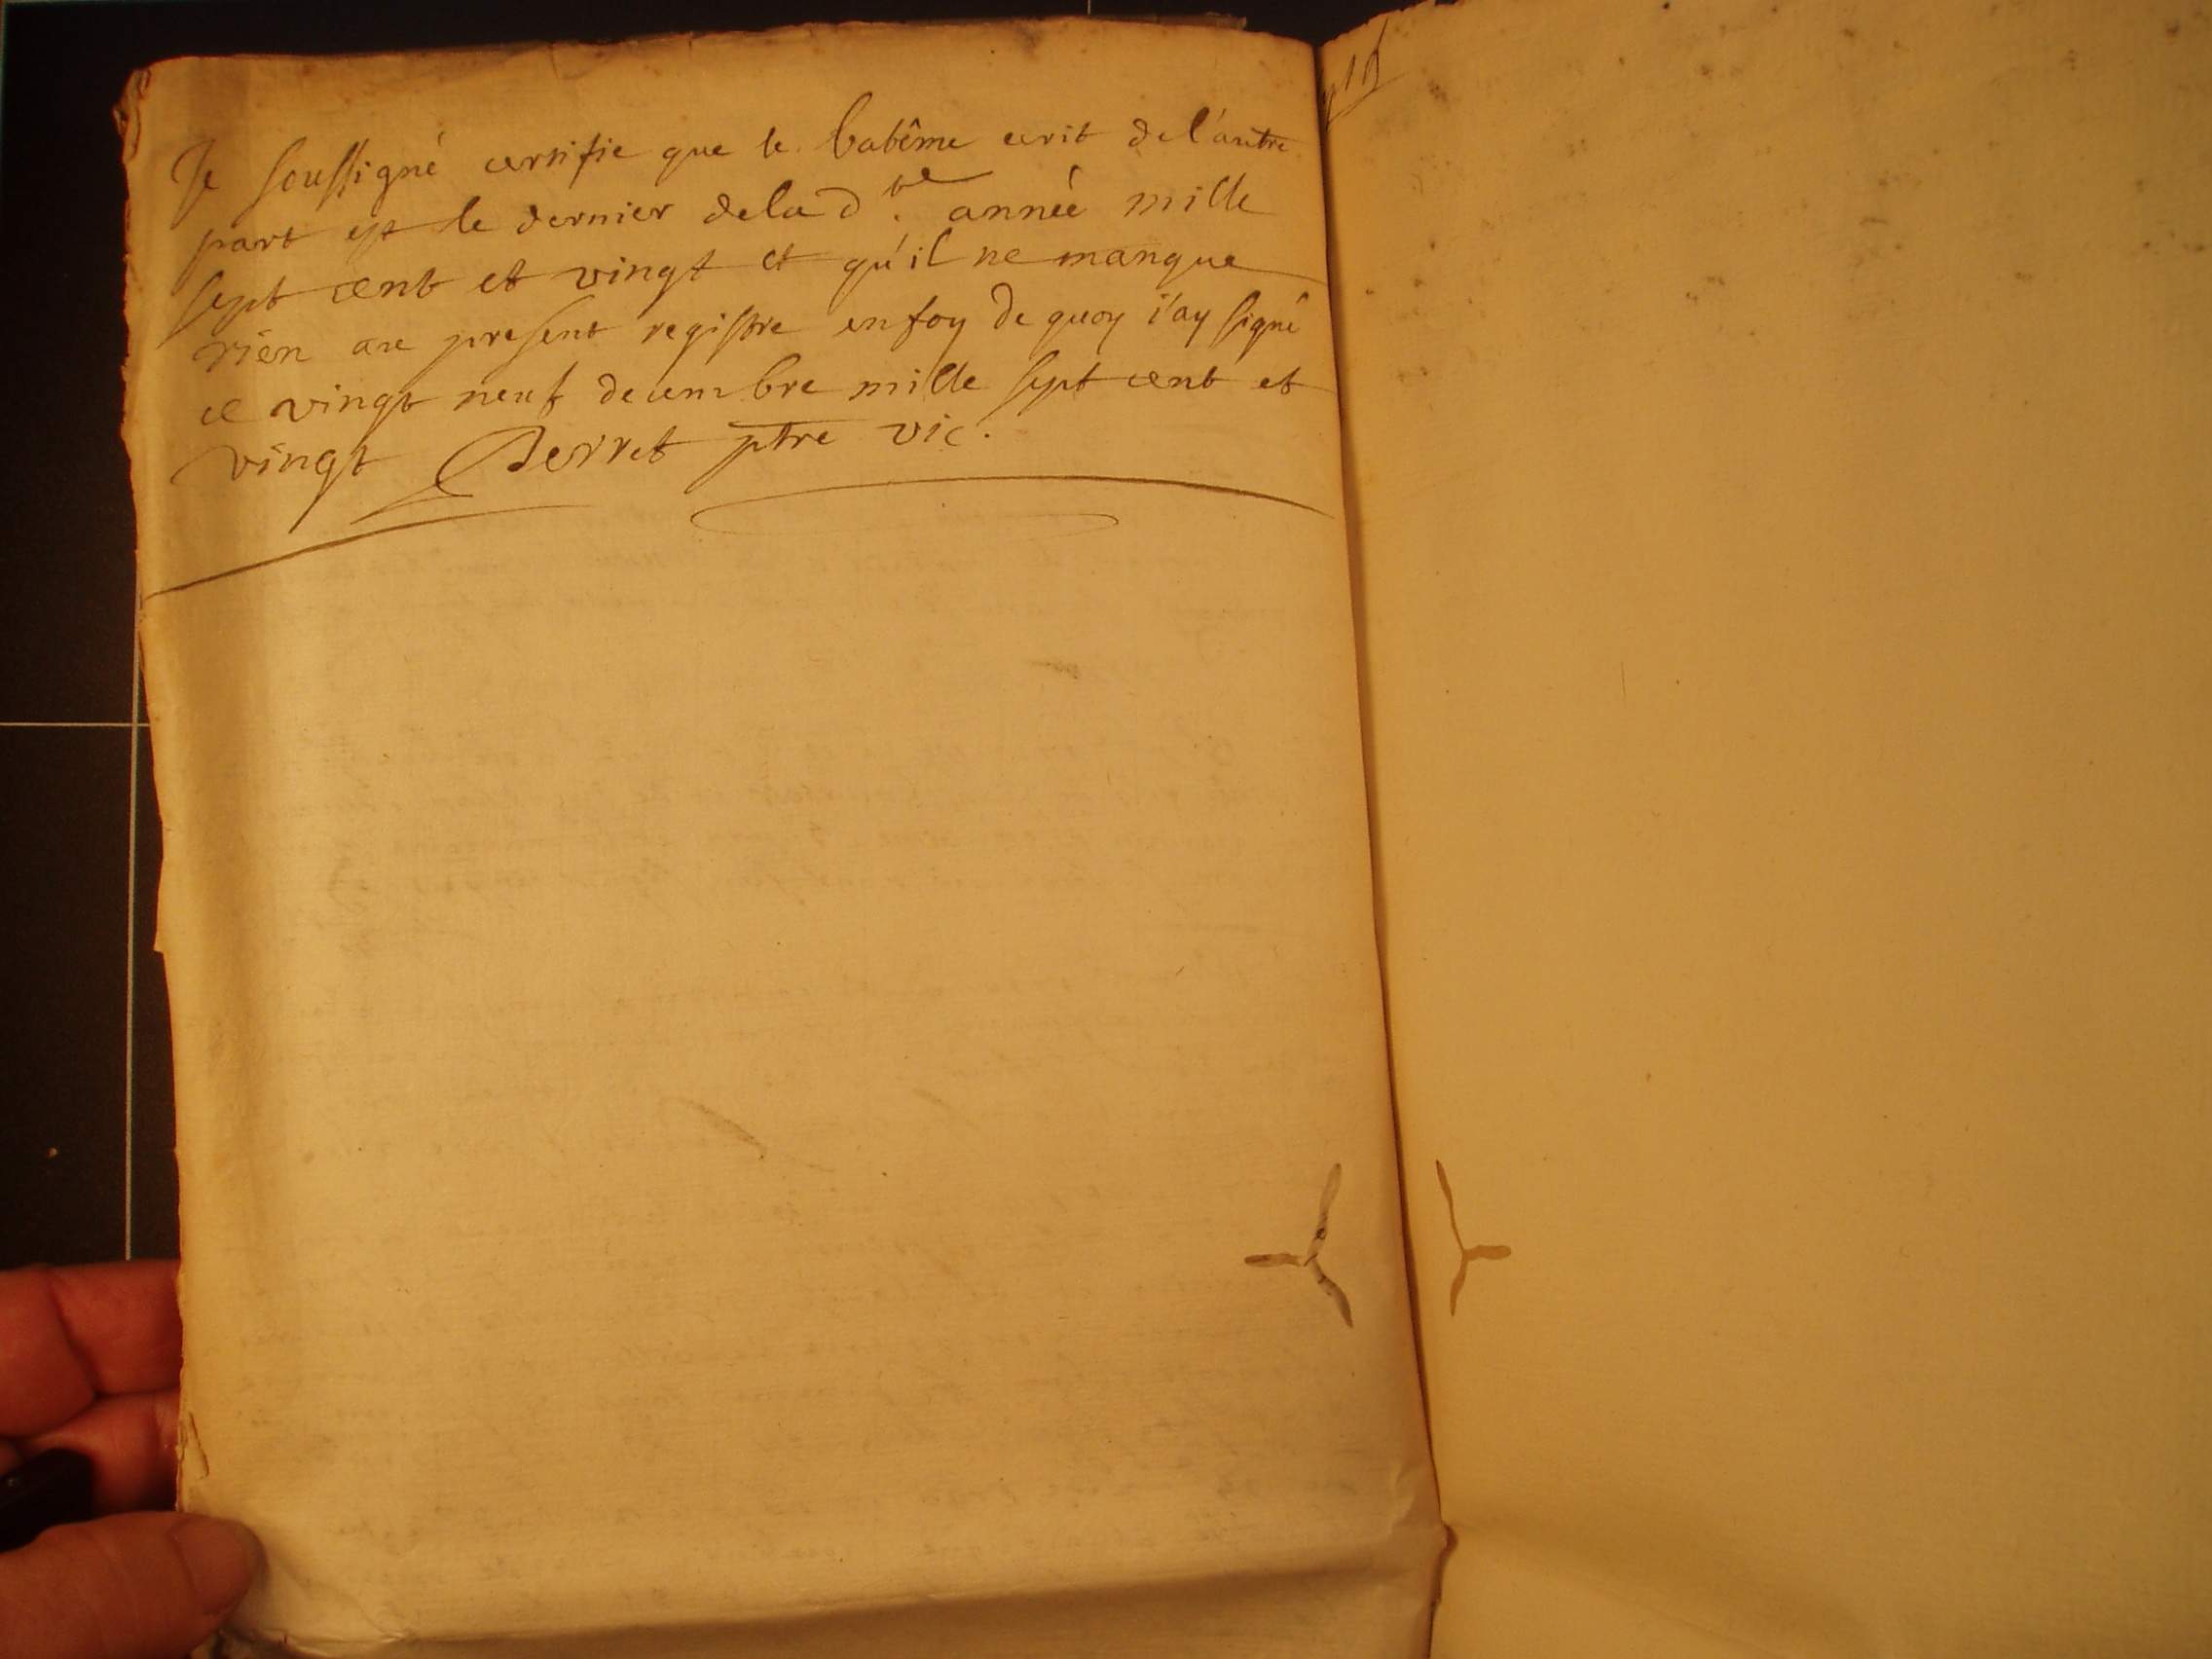 Je soussigné certifie que le batême ecrit de l'autre
part est le dernier de la d.te année mille
sept cent et vingt et qu'il ne manque
rien au present registre en foy de quoy i'ay signé
ce vingt neuf decembre mille sept cent et
vingt Perret ptre vic.